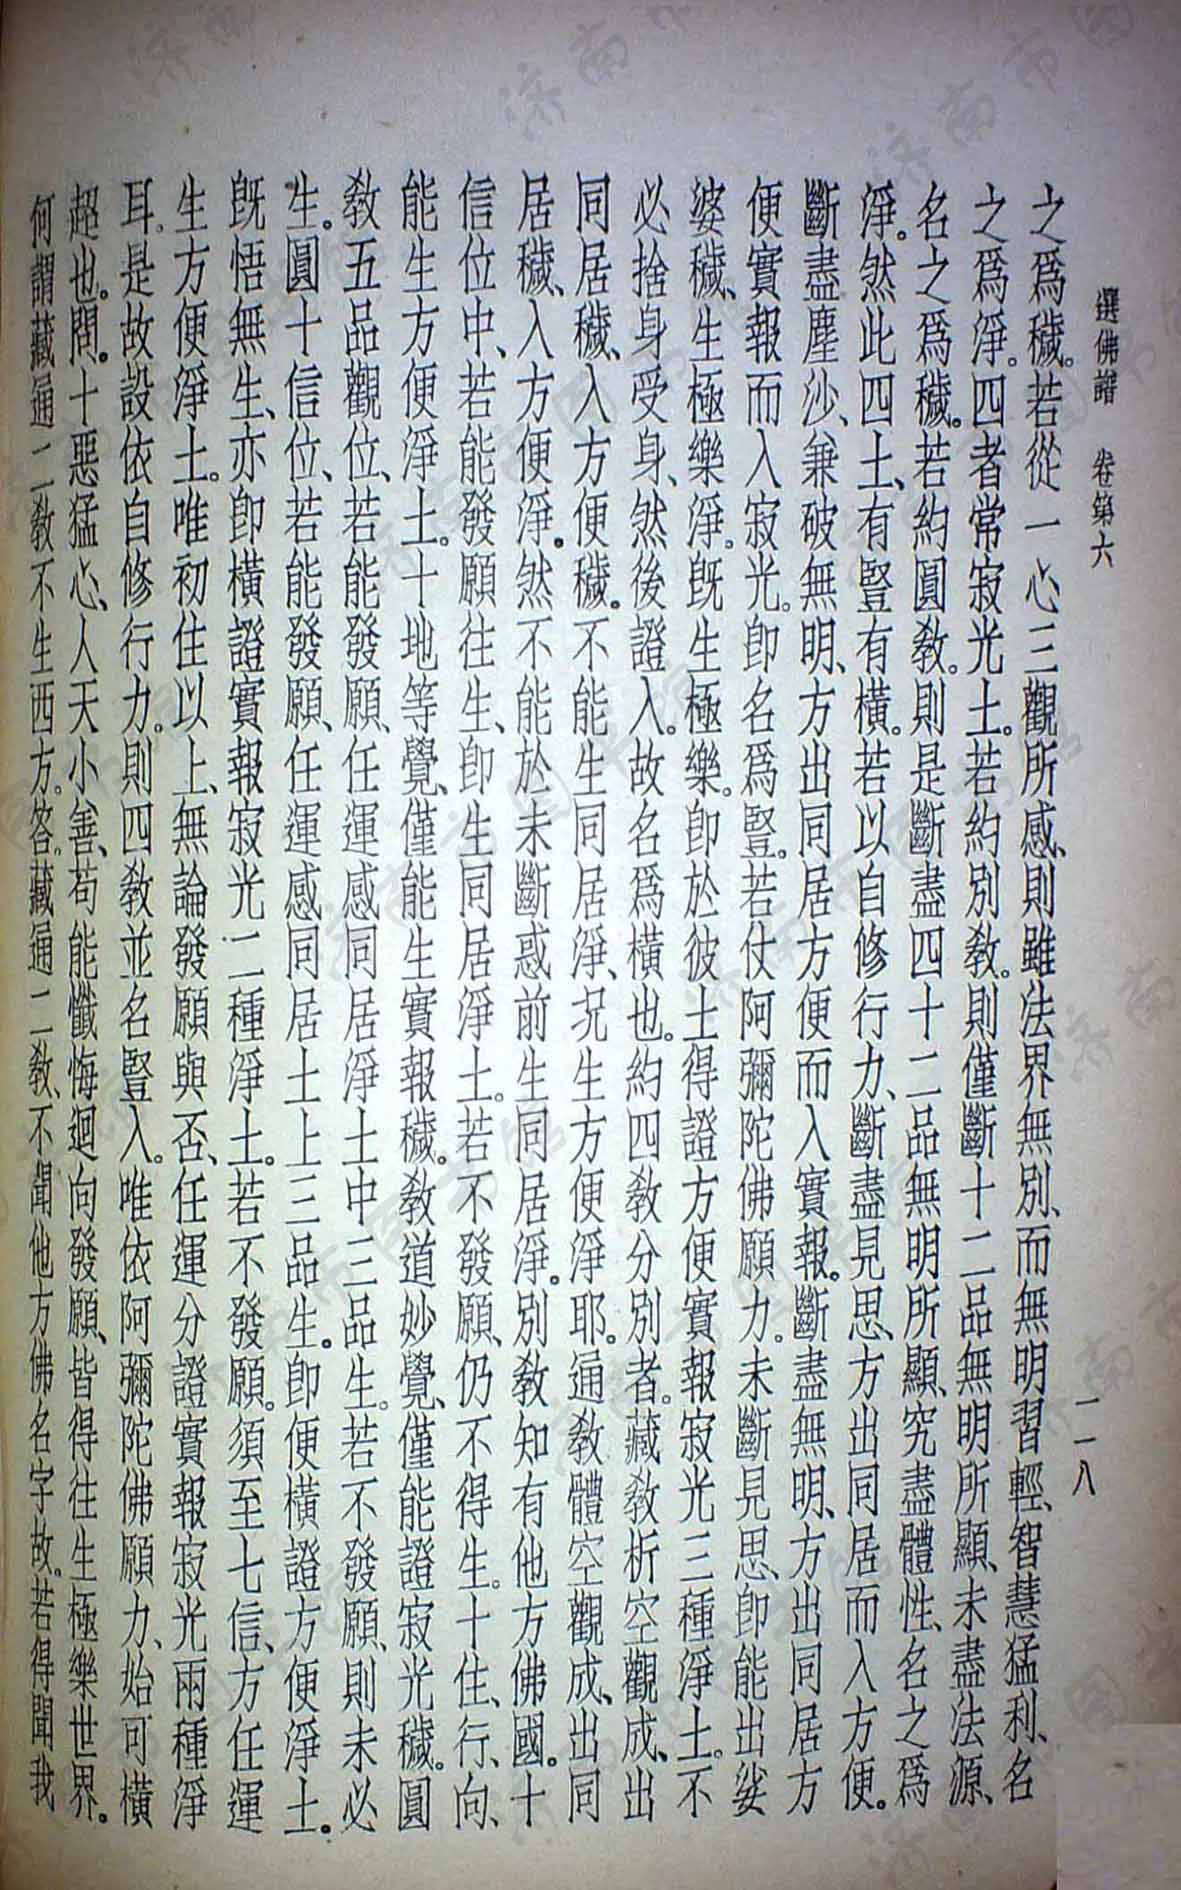 選佛譜　卷第六
二一八
之爲穢。若從一心三觀所感、則雖法界無別、而無明習輕、智慧猛利、名
之爲淨。四者常寂光土。若約別敎。則僅斷十二品無明所顯、未盡法源、
名之爲穢。若約圓敎。則是斷盡四十二品無明所顯、究盡體性、名之爲
淨。然此四土、有豎有橫。若以自修行力、斷盡見思、方出同居而入方便。
斷盡塵沙、兼破無明、方出同居方便而入實報。斷盡無明、方出同居方
便實報而入寂光。卽名爲豎。若仗阿彌陀佛願力。未斷見思、卽能出娑
婆穢、生極樂淨。旣生極樂。卽於彼土得證方便實報寂光三種淨土。不
必捨身受身、然後證入。故名爲橫也。約四敎分別者。藏敎析空觀成、出
同居穢、入方便穢。不能生同居淨、況生方便淨耶。通敎體空觀成、出同
居穢、入方便淨。然不能於未斷惑前生同居淨。別敎知有他方佛國。十
信位中、若能發願往生、卽生同居淨土。若不發願、仍不得生。十住、行、向、
能生方便淨土。十地等覺、僅能生實報穢。敎道妙覺、僅能證寂光穢。圓
敎五品觀位、若能發願、任運感同居淨土中三品生。若不發願、則未必
生。圓十信位、若能發願、任運感同居土上三品生。卽便橫證方便淨土。
旣悟無生、亦卽橫證實報寂光二種淨土。若不發願。須至七信、方任運
生方便淨土。唯初住以上、無論發願與否、任運分證實報寂光兩種淨
耳。是故設依自修行力。則四敎並名豎入。唯依阿彌陀佛願力、始可橫
超也。問。十惡猛心、人天小善、苟能懺悔迴向發願、皆得往生極樂世界。
何謂藏通二敎不生西方。答。藏通二敎、不聞他方佛名字故。若得聞我